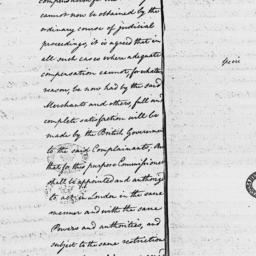 cannot now be obtained by the
ordinary course of judicial
proceedings, it is agreed that in
all such cases where adequate
compensation cannot, for whatever
reason, be now had by the said
Merchants and others, full and
complete satisfaction will be
made by the British Government
to the said Complainants, And
that for this purpose Commissioners
shall be appointed and authorized
to act in London in the same
manner and with the same
Powers and authorities, and
subject to the same restriction